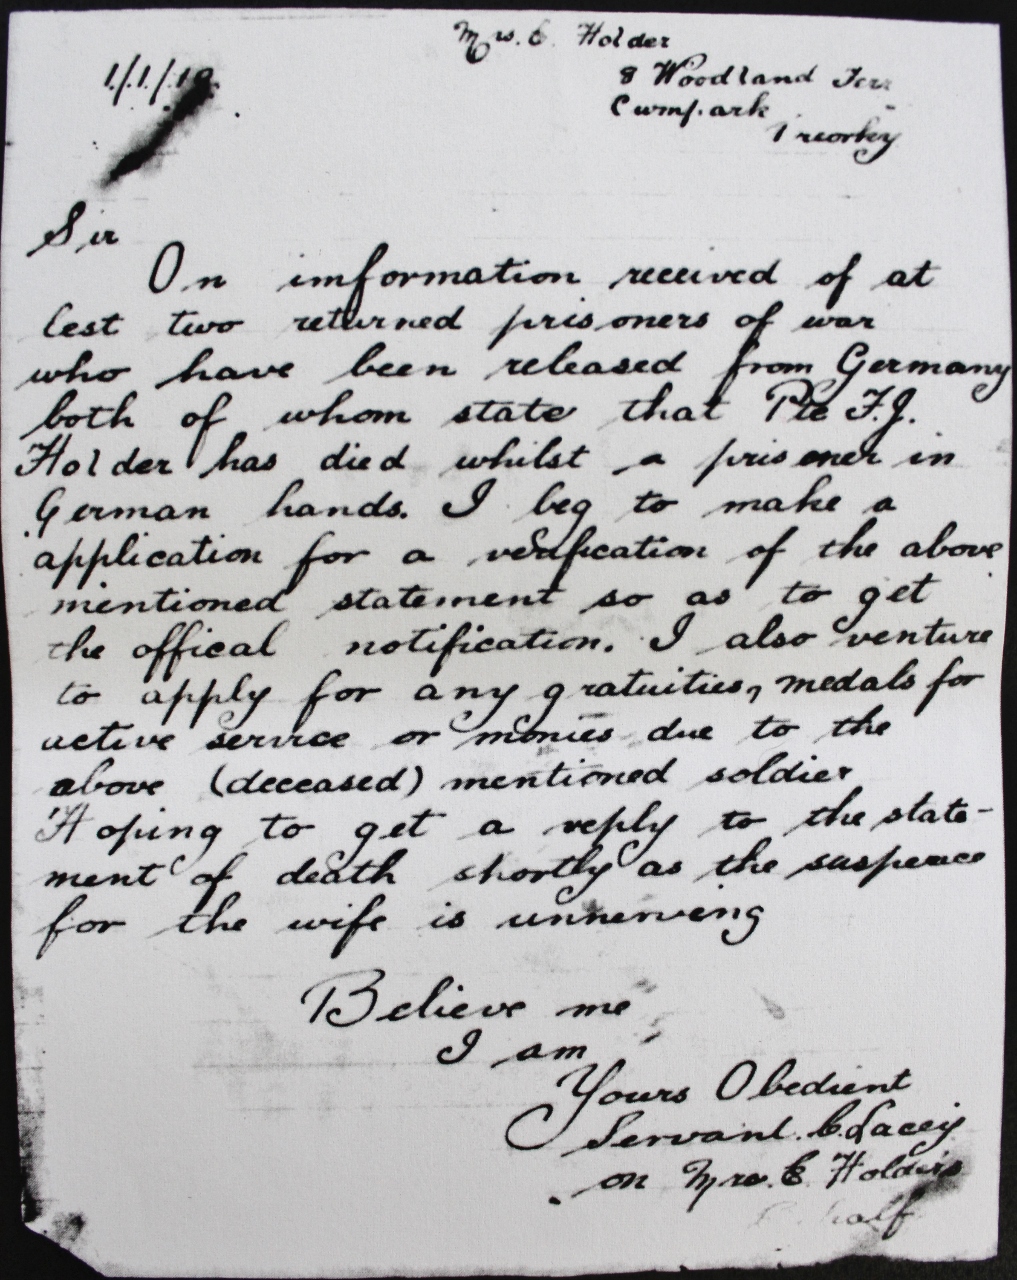 Mrs. E Holder
1/1/19.
8 Woodland Terr
Cwmpark
Treorky
Sir
On imformation received of at
lest two returned prisoners of war
who have been released from Germany
both of whom state that Pte F.J.
Holder has died whilst a prisoner in
German hands. I beg to make a
application for a verification of the above
mentioned statement so as to get
the offical notification. I also venture
to apply for any gratuities, medals for
active service or monies due to the
above (deceased) mentioned soldier
Hoping to get a reply to the state-
ment of death shortly as the suspence
for the wife is unnerving
Believe me
I am
Yours Obedient
Servant. C. Lacey
on Mrs. E Holders
half